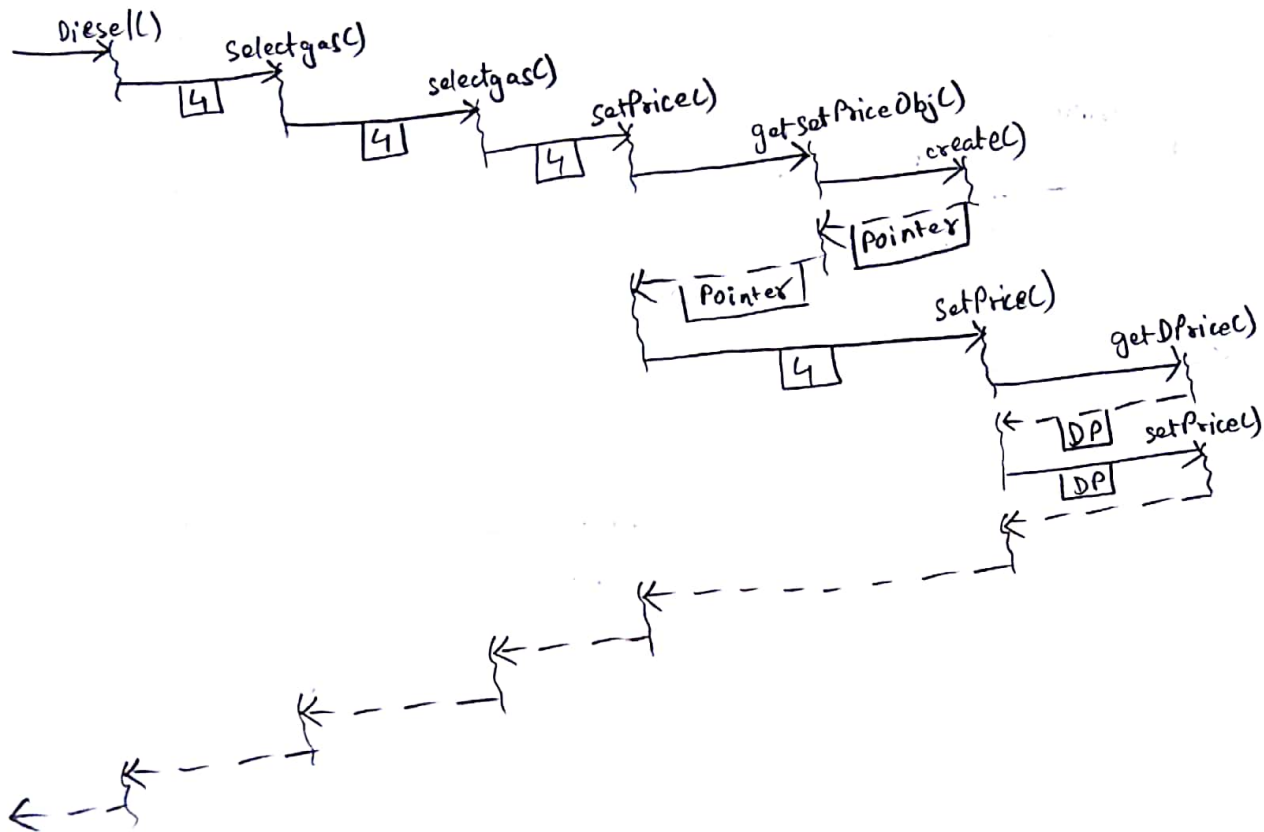 Diesel()
Selectgas()
4
selectgas()
4
setPrice()
4
getSetPriceObj()
create()
Pointer
Pointer
SetPrice()
4
getDPrice()
DP
setPrice()
DP